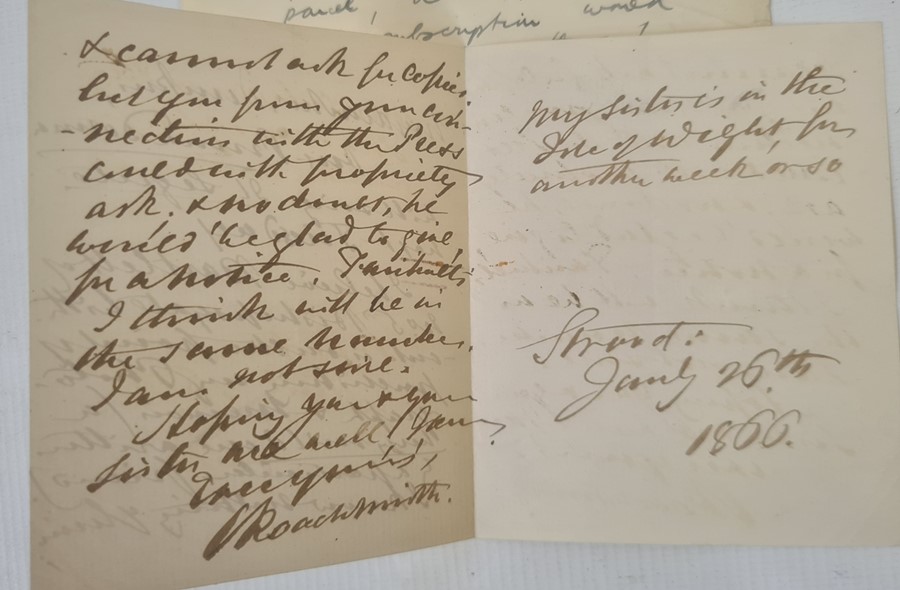 panel, a
subscription would
& cannot ask for copies,
but you from your con-
-nection with the Press
could with propriety
ask. & no doubt, he
would be glad to give,
for a notice.
I think will be in
the same number.
I am not sure.
Hoping you & your
sister are well I am
Ever yours,
C Roach Smith.
My sister is in the
Isle of Wight, for
another week or so
Strood:
Jany 26.th
1866.